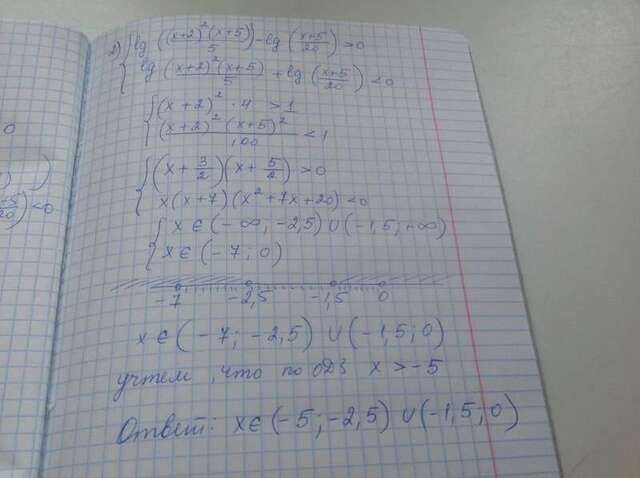 2) { lg ((x+2)²(x+5)/5) - lg (x+5/20) > 0
{ lg (x+2)²(x+5)/5 + lg (x+5/20) < 0
{ (x+2)² · 4 > 1
{ (x+2)²(x+5)²/100 < 1
{ (x + 3/2)(x + 5/2) > 0
{ x(x+7)(x²+7x+20) < 0
{ x ∈ (-∞; -2,5) ∪ (-1,5; +∞)
{ x ∈ (-7; 0)
-7 -2,5 -1,5 0
x ∈ (-7; -2,5) ∪ (-1,5; 0)
учтем, что по ОДЗ x > -5
Ответ: x ∈ (-5; -2,5) ∪ (-1,5; 0)
0
)
+5/20) < 0